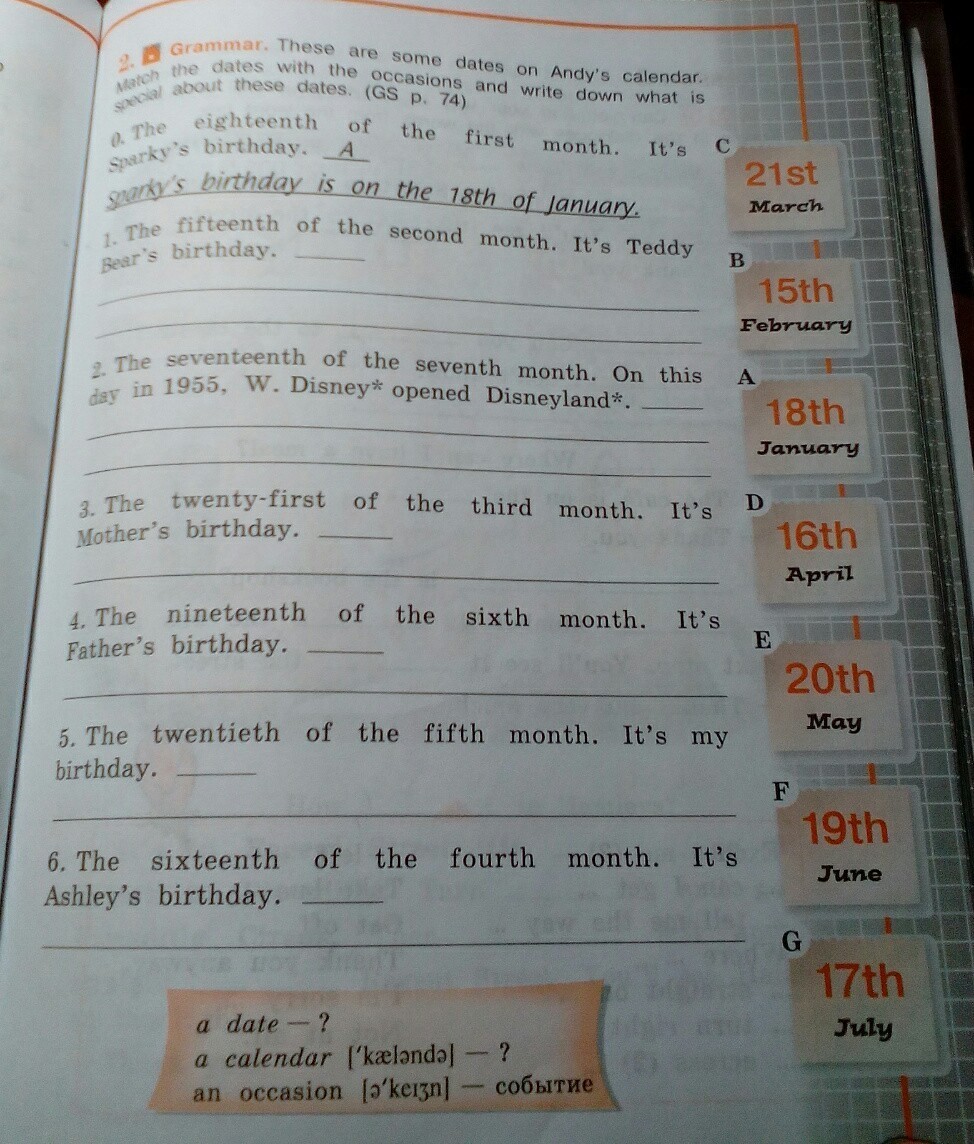 2. Grammar. These are some dates on Andy's calendar.
Match the dates with the occasions and write down what is
special about these dates. (GS p. 74)
0. The eighteenth of the first month. It's
Sparky's birthday. A
Sparky's birthday is on the 18th of January.
1. The fifteenth of the second month. It's Teddy
Bear's birthday. ______
2. The seventeenth of the seventh month. On this
day in 1955, W. Disney* opened Disneyland*. ______
3. The twenty-first of the third month. It's
Mother's birthday. ______
4. The nineteenth of the sixth month. It's
Father's birthday. ______
5. The twentieth of the fifth month. It's my
birthday. ______
6. The sixteenth of the fourth month. It's
Ashley's birthday. ______
C
21st
March
B
15th
February
A
18th
January
D
16th
April
E
20th
May
F
19th
June
G
17th
July
a date — ?
a calendar [ˈkæləndə] — ?
an occasion [əˈkeɪʒn] — событие